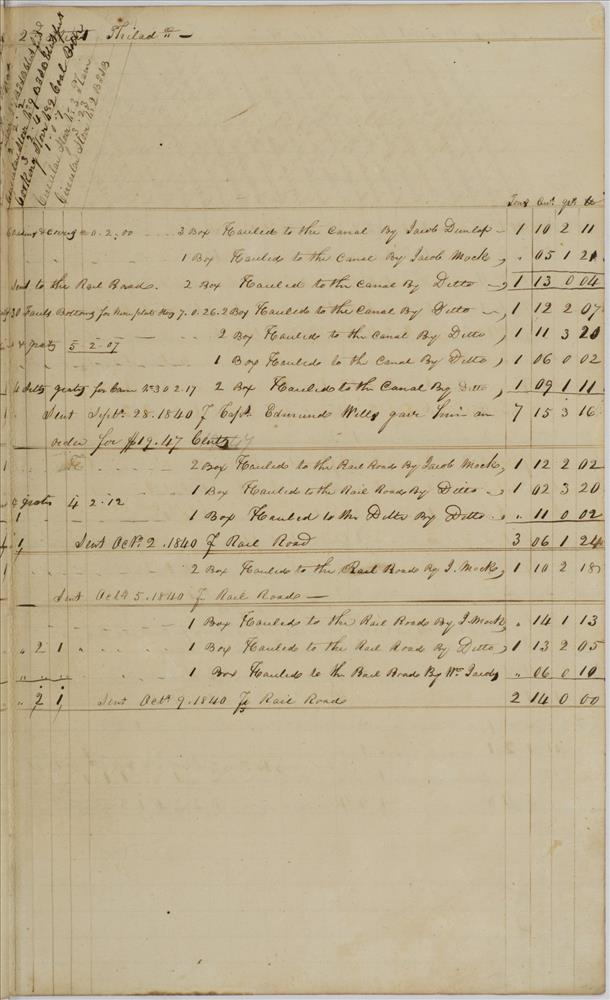 2 Philad a —
Cooking Stove No 2 Coal
Circular Stove No 3
Circular Stove No 2
Tons Cwt qrs lbs
0.2.00 3 Box Hauled to the Canal By Jacob Dunlop 1 10 2 11
1 Box Hauled to the Canal By Jacob Mock " 05 1 21
Sent to the Rail Roads. 2 Box Hauled to the Canal By Ditto 1 13 0 04
7.0.26. 2 Box Hauled to the Canal By Ditto 1 12 2 07
grats 5.2.07 2 Box Hauled to the Canal By Ditto 1 11 3 20
1 Box Hauled to the Canal By Ditto 1 06 0 02
grats for No 3 0 2.17 2 Box Hauled to the Canal By Ditto 1 09 1 11
Sent Sept. 28. 1840 Capt. Edmunds Wills gave him an 7 15 3 16
order for $19.47 Cents
2 Box Hauled to the Rail Roads By Jacob Mock 1 12 2 02
grats 4 2.12 1 Box Hauled to the Rail Roads By Ditto 1 02 3 20
1 1 Box Hauled to the Ditto By Ditto " 11 0 02
1 Sent Oct. 2. 1840 Rail Road 3 06 1 24
2 Box Hauled to the Rail Roads By J. Mock 1 10 2 18
Sent Oct. 5. 1840 Rail Roads —
1 Box Hauled to the Rail Roads By J. Mock " 14 1 13
" 2 1 " 1 Box Hauled to the Rail Road By Ditto 1 13 2 05
1 Box Hauled to the Rail Road By Wm Jacobs " 06 0 10
" 2 1 Sent Oct. 9. 1840 Rail Roads 2 14 0 00